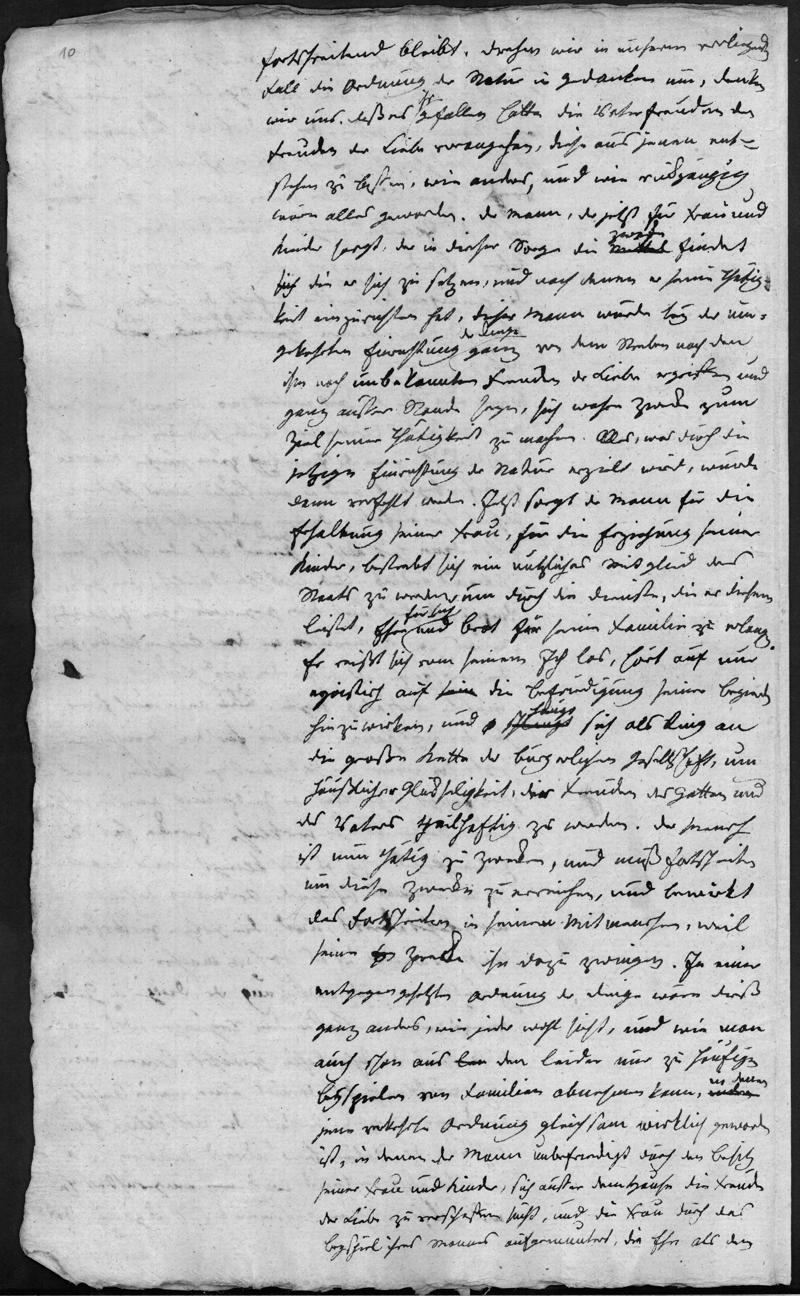 10
fortschreitend bleibt. Drehen wir in unserm vorliegenden
Fall die Ordnung der Natur in Gedanken um, denken
wir uns, daß es ihr gefallen hätte die Vaterfreuden den
Freuden der Liebe vorangehen, diese aus jenen ent-
stehen zu lassen, wie anders, und wie rückgängig
wäre alles geworden. Der Mann, der jetzt für Frau und
Kinder sorgt, der in dieser Sorge die Zwecke findet
die er sich zu setzen, und nach denen er seine Thätig-
keit einzurichten hat, dieser Mann würde bey der um-
gekehrten Einrichtung der Dinge ganz von dem Streben nach den
ihm noch unbekannten Freuden der Liebe ergriffen und
ganz außer Stande seyn, sich wahre Zwecke zum
Ziel seiner Thätigkeit zu machen. Alles, was durch die
jetzige Einrichtung der Natur erzielt wird, würde
dann verfehlt werden. Jetzt sorgt der Mann für die
Erhaltung seiner Frau, für die Erziehung seiner
Kinder, bestrebt sich ein nützliches Mitglied des
Staats zu werden, um durch die Dienste, die er diesem
leistet, Ehre für sich und Brot für seine Familie zu erlangen.
Er reißt sich von seinem Ich los, hört auf nur
egoistisch auf die Befriedigung seiner Begierden
hinzuwirken, und hängt sich als Ring an
die große Kette der bürgerlichen Gesellschaft, um
häuslicher Glückseligkeit, der Freuden des Gatten und
des Vaters theilhaftig zu werden. Der Mensch
ist nun thätig zu Zwecken, und muß fortschreiten
um diese Zwecke zu erreichen, und bewirkt
das Fortschreiten in seinen Mitmenschen, weil
seine Zwecke ihn dazu zwingen. In einer
entgegengesetzten Ordnung der Dinge wäre dieß
ganz anders, wie jeder wohl sieht, und wie man
auch schon aus den leider nur zu häufigen
Beyspielen von Familien abnehmen kann, in denen
jene verkehrte Ordnung gleichsam wirklich geworden
ist, in denen der Mann unbefriedigt durch den Besitz
seiner Frau und Kinder, sich außer dem Hause die Freuden
der Liebe zu verschaffen sucht, und die Frau durch das
Beyspiel ihres Mannes aufgemuntert, die Ehe als den